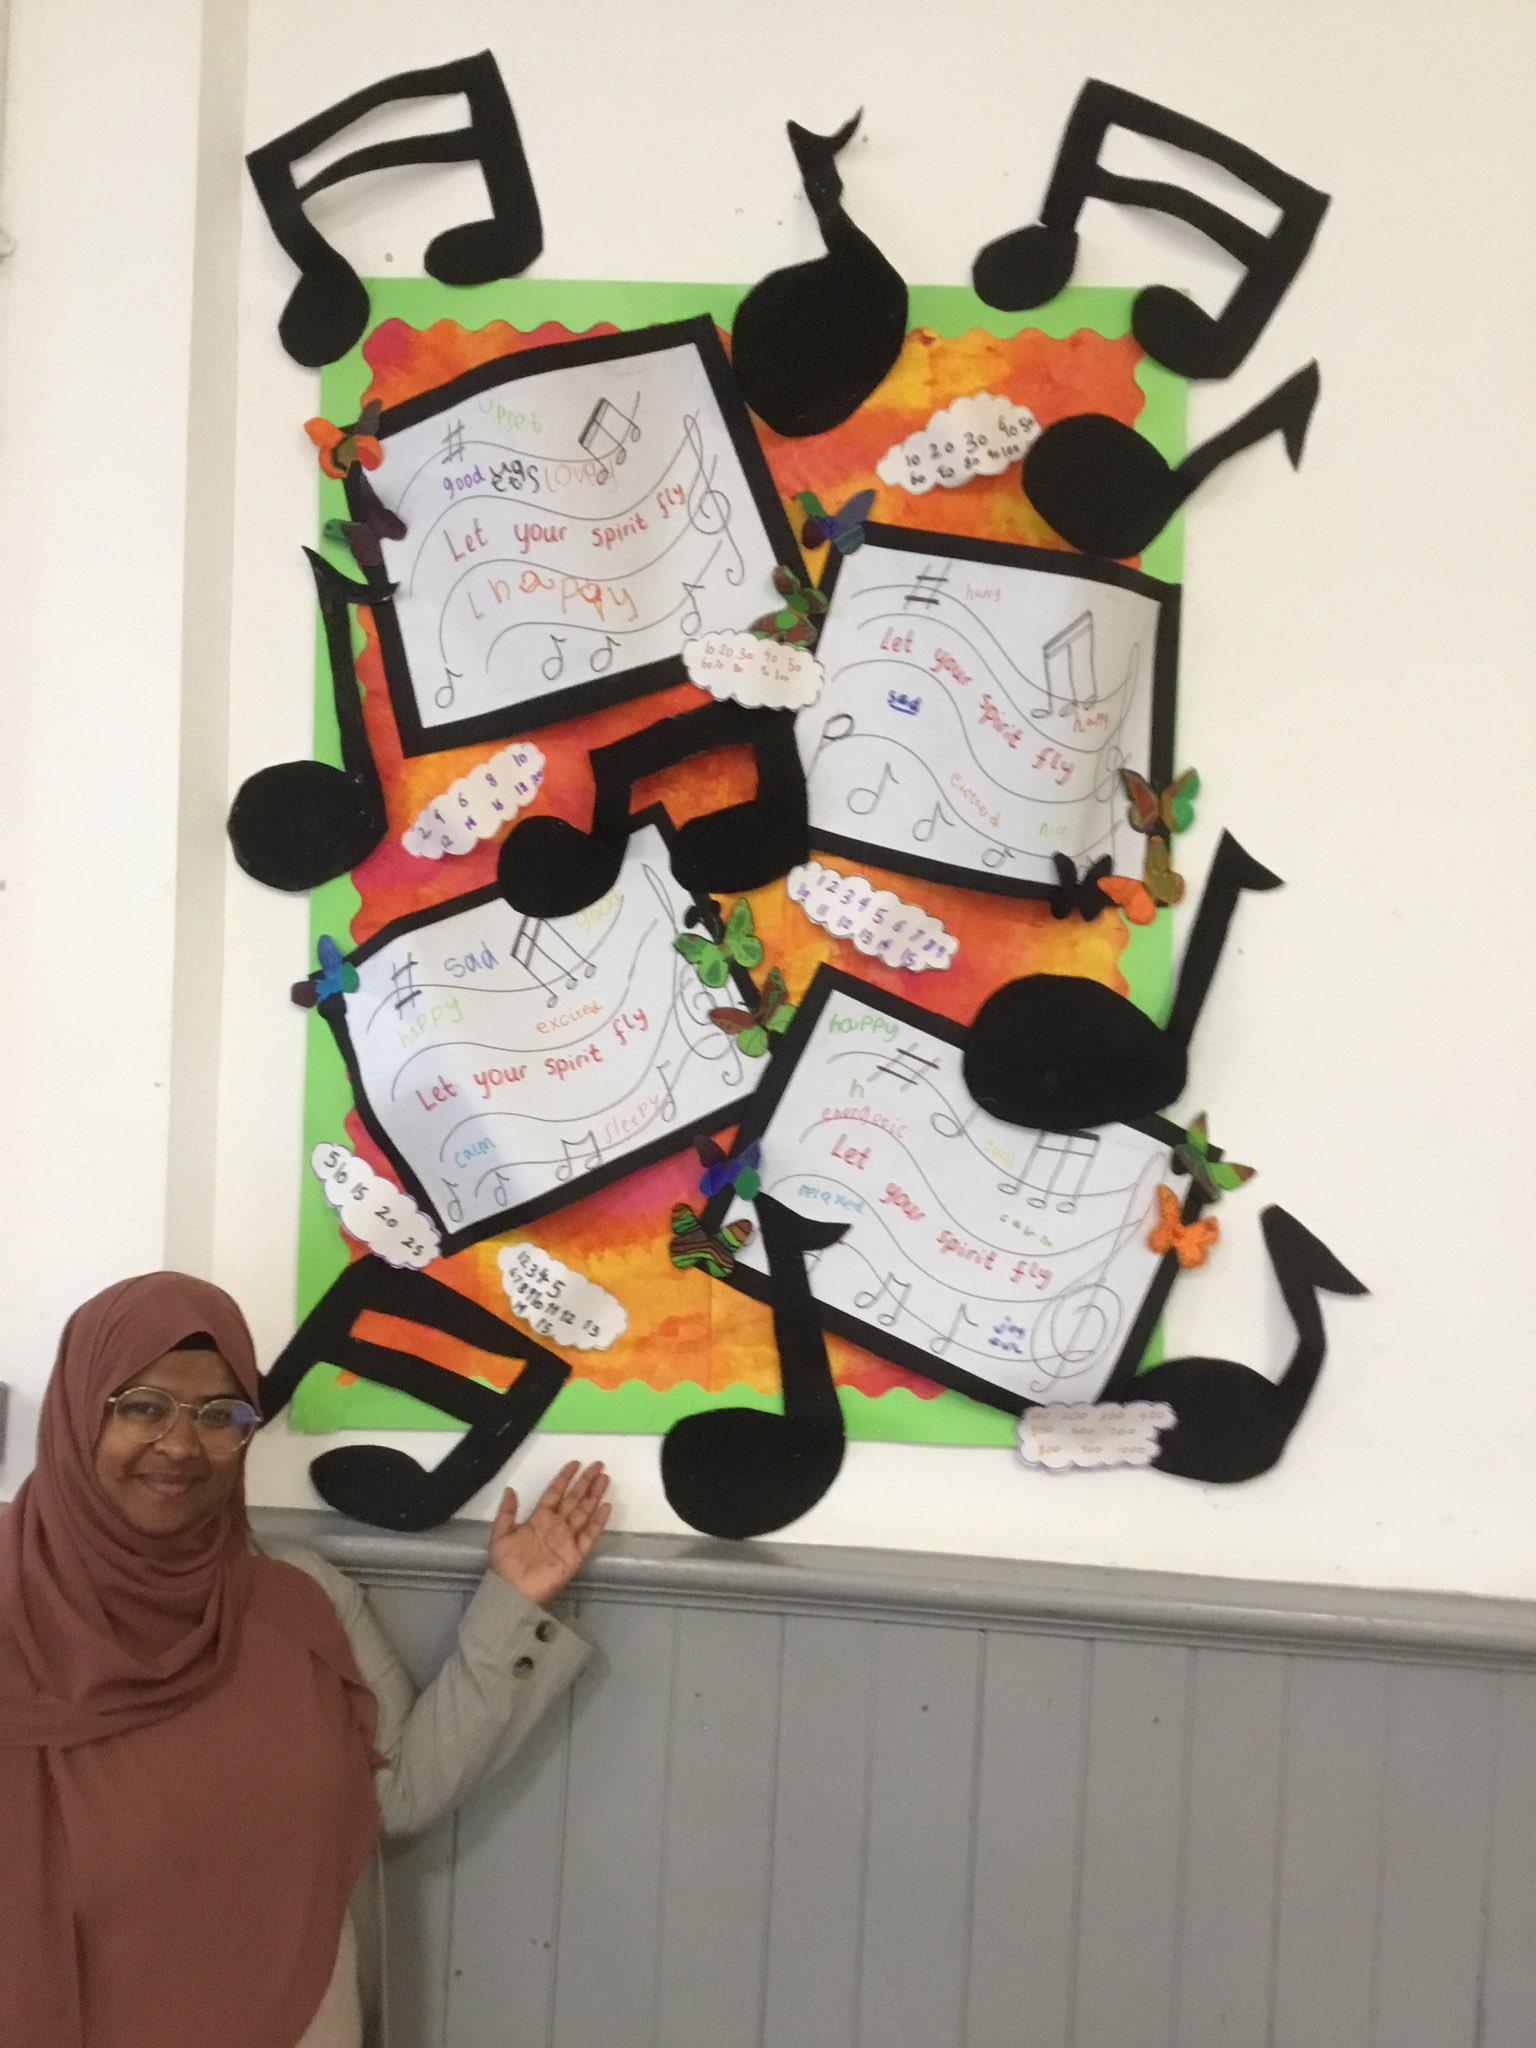 upset
good lovely
Let your spirit fly
happy
10 20 30 40 50
60 70 80 90 100
10 20 30 40 50
60 70 80 90 100
happy
Let your spirit fly
happy
sad
excited
nice
2 4 6 8 10
12 14 16 18 20
1 2 3 4 5 6 7 8 9
10 11 12 13 14 15
sad
happy
excited
Let your spirit fly
calm
sleepy
happy
h
energetic
good
Let your spirit fly
relaxed
calm
joy
5 10 15 20 25
1 2 3 4 5
6 7 8 9 10 11 12 13
14 15
100 200 300 400
500 600 700
800 900 1000